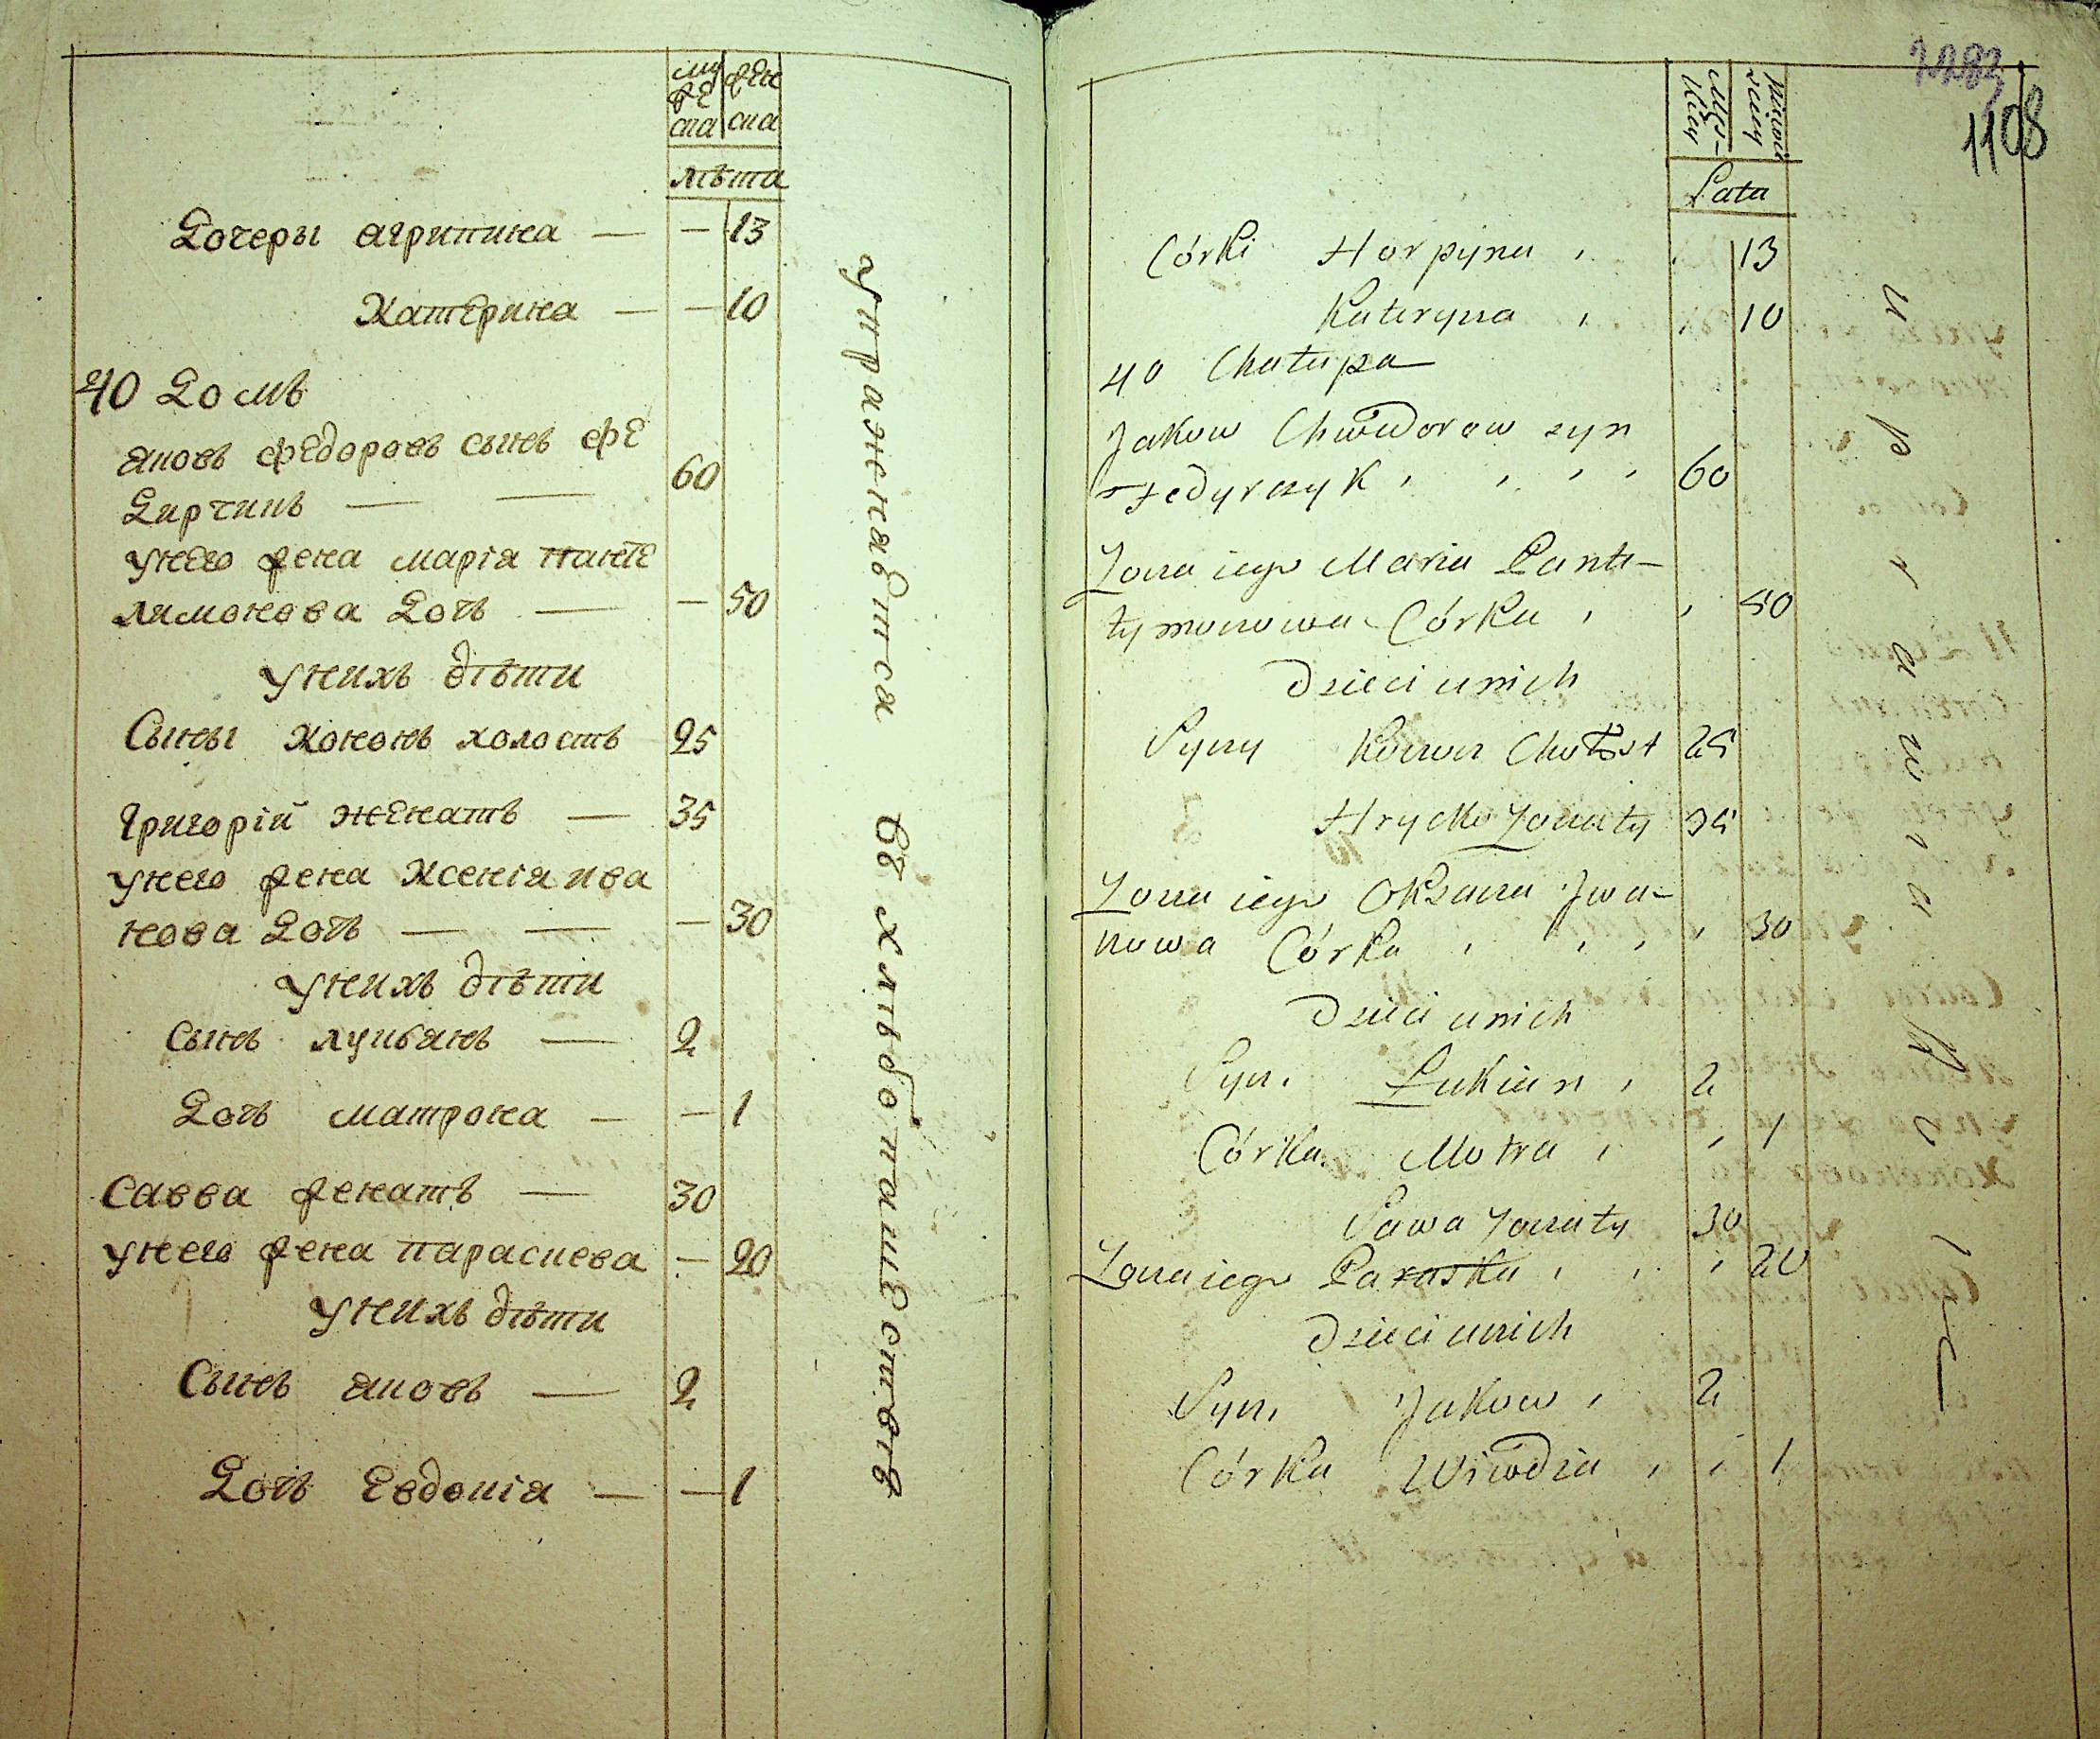 муже ска
женска
лѣта
Дочеры агрипина — — 13
Катерина — — 10
40 Домъ
яковъ федоровъ сынъ фе
дирчикъ — — 60
унего жена марія панте
лимонова дочь — — 50
унихъ дѣти
Сыны кононъ холостъ 25
Григорій женатъ — 35
унего жена ксенія ива
нова дочь — — — 30
унихъ дѣти
сынъ лукьянъ — 2
дочь матрона — — 1
савва женатъ — 30
унего жена параскева — 20
унихъ дѣти
Сынъ яковъ — 2
Дочь Евдокія — — 1
упражнявтся въ хлѣбопашествѣ
1108
Męs-
kiey
Lata
Córki Horpyna , 13
Kateryna , , 10
40 Chałupa
Jakow Chwedorow syn
Fedyrczyk , , , , 60
Zona iego Maria Pante-
łymonowa Córka , , 50
Dzieci unich
Syny Konon Chołost 25
Hryćko Zonaty 35
Zona iego Oksana Iwa-
nowa Córka , , , , 30
Dzieci unich
Syn. Łukian , 2
Córka. Motra , , 1
Sawa Zonaty 30
Zona iego Paraska , , , 20
Dzieci unich
Syn, Jakow , 2
Córka Wiwdia , , 1